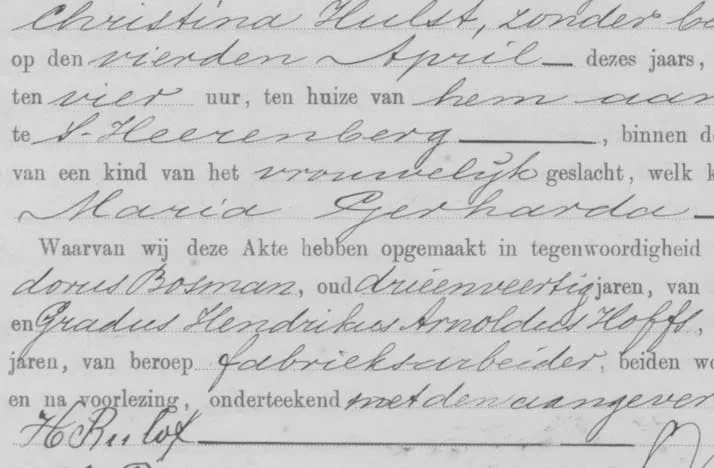 Christina Hulst, zonder be
op den vierden April dezes jaars,
ten vier uur, ten huize van hem aan
te s-Heerenberg, binnen de
van een kind van het vrouwelijk geslacht, welk k
Maria Gerharda
Waarvan wij deze Akte hebben opgemaakt in tegenwoordigheid
dorus Bosman, oud drieenveertig jaren, van
en Gradus Hendrikus Arnoldus Hoffs,
jaren, van beroep fabrieksarbeider, beiden wo
en na voorlezing, onderteekend met den aangever
H Rulof